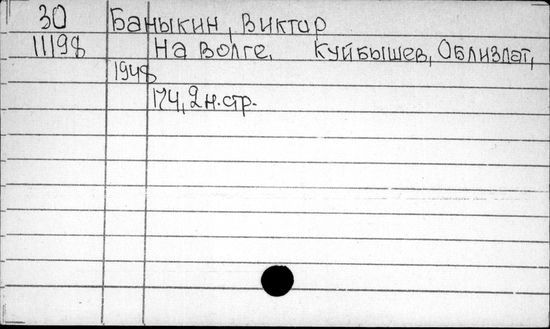 30 Баныкин, Виктор
11198 На Волге. Куйбышев, Облизлат,
1948
174, 2 н. стр.